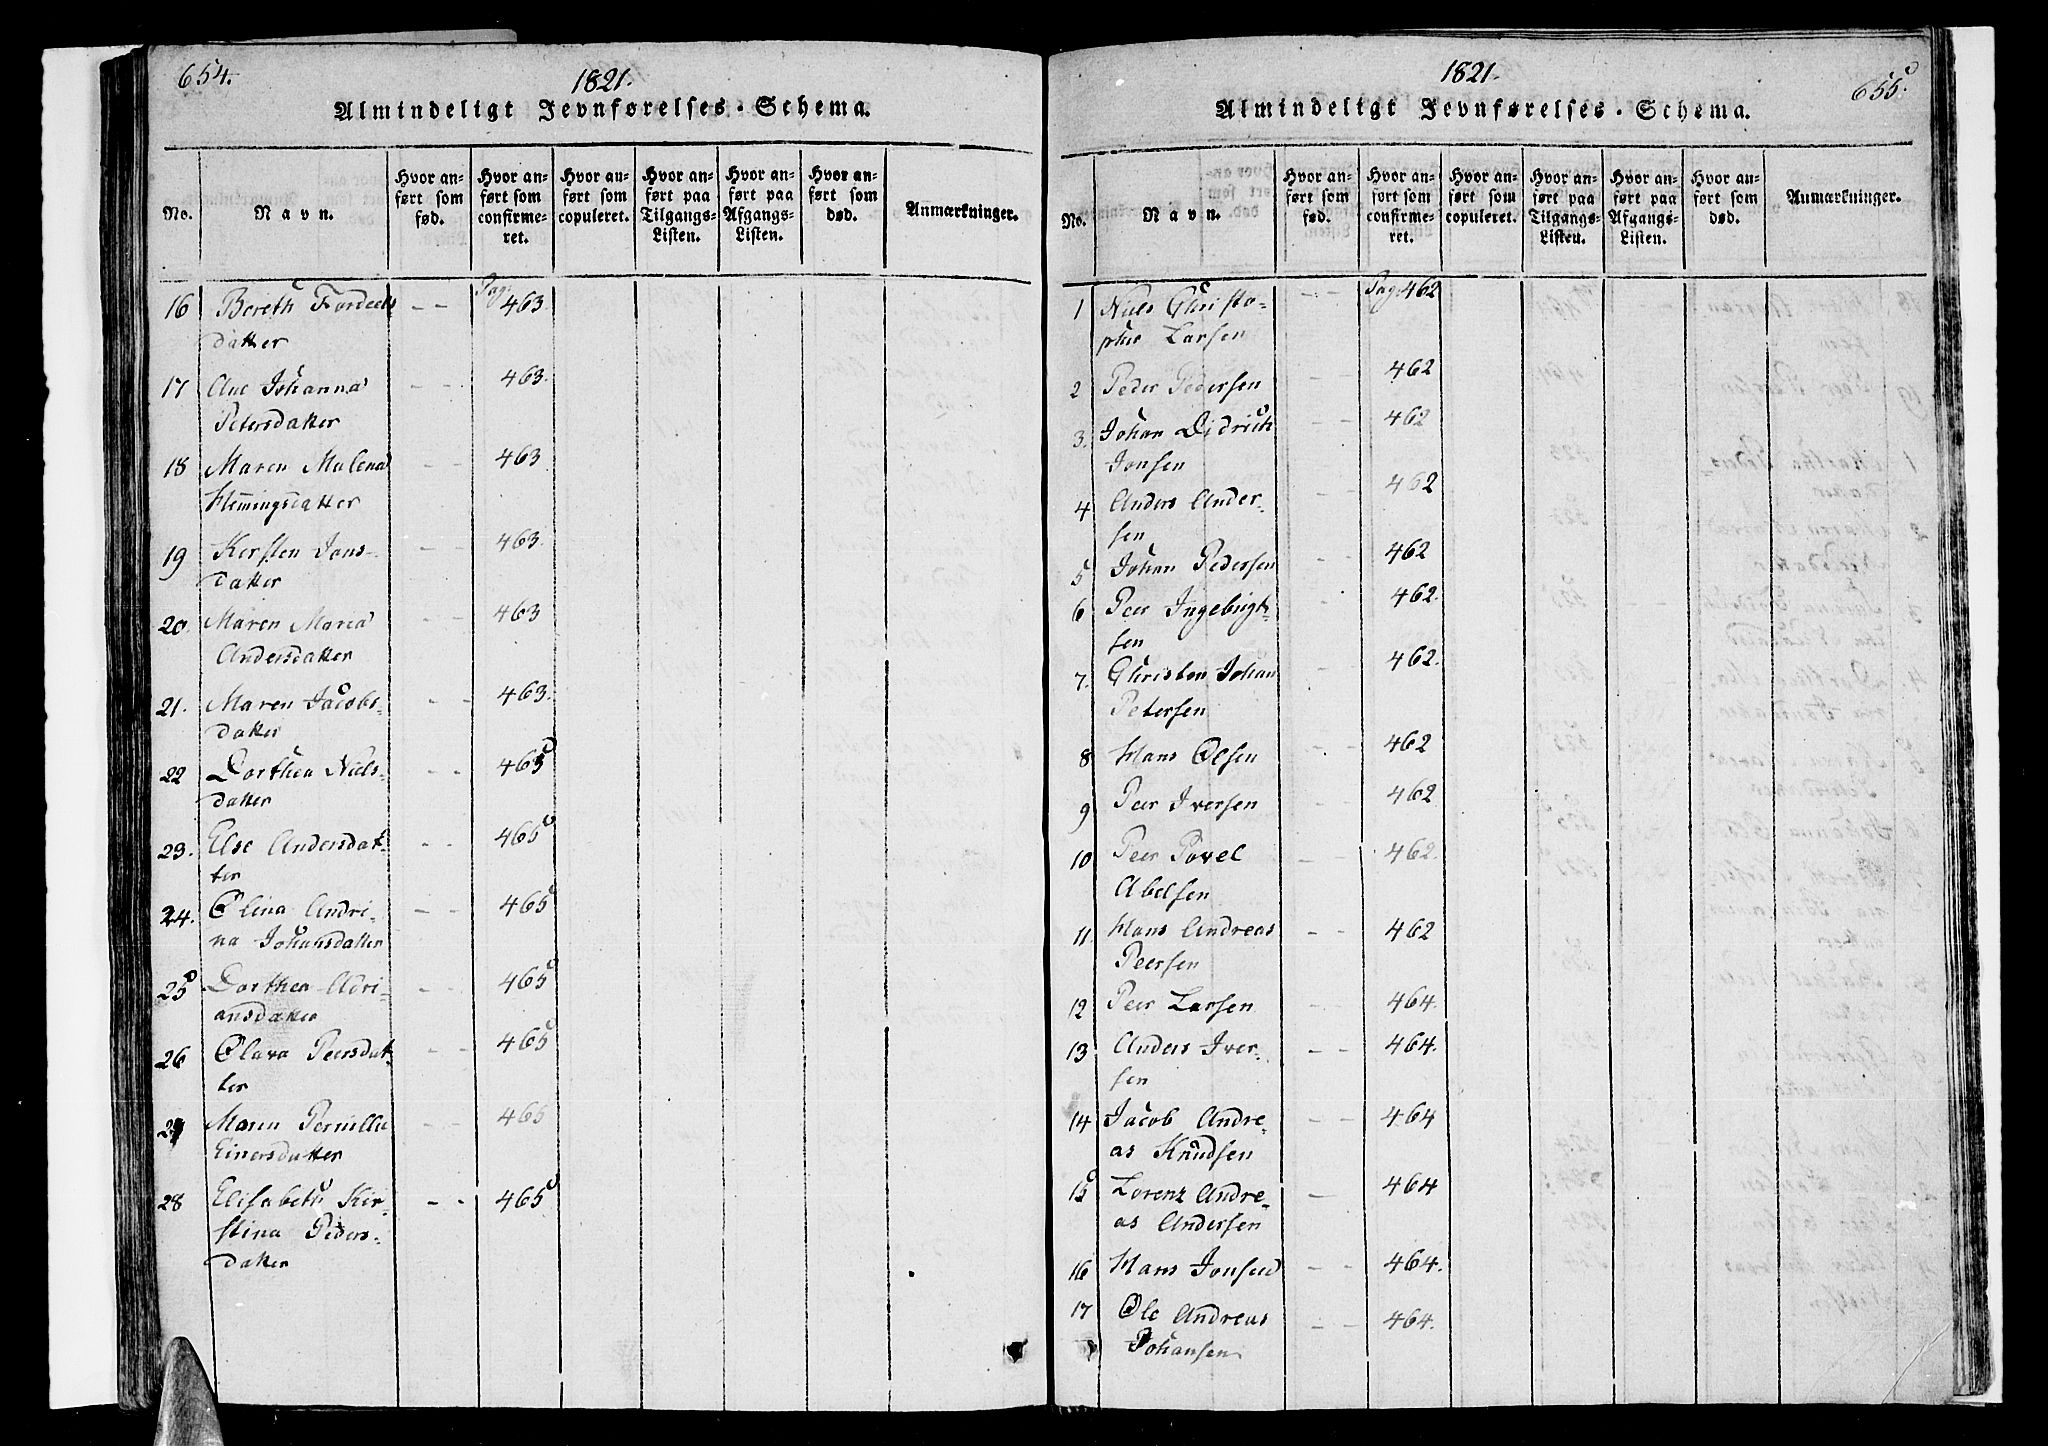 654.
1821.
Almindeligt Jevnførelses-Schema.
No.
Navn.
Hvor an-
ført som
fød.
Hvor an-
ført som
confirme-
ret.
Hvor an-
ført som
copuleret.
Hvor an-
ført paa
Tilgangs-
Listen.
Hvor an-
ført paa
Afgangs-
Listen.
Hvor an-
ført som
død.
Anmærkninger.
16 Bereth - - Pag: 463.
datter
17 Ane Johanna - - 463.
Petersdatter
18 Maren Malena - - 463
Flemmingsdatter
19 Kirsten Jons- - - 463.
datter
20. Maren Maria - - 463
Andersdatter
21. Maren Jacobs- - - 463.
datter
22 Dorthea Niels- - - 465
datter
23. Else Andersdat- - - 465
ter
24. Olina Andri- - - 465
na Johansdatter
25 Dorthea Adri- - - 465
ansdatter
26 Olava Peersdat- - - 465
ter
27 Maren Pernille - - 465
Einersdatter
28 Elisabeth Kir- - - 465
stina Peders-
datter
655.
1821.
Almindeligt Jevnførelses-Schema.
No.
Navn.
Hvor an-
ført som
fød.
Hvor an-
ført som
confirme-
ret.
Hvor an-
ført som
copuleret.
Hvor an-
ført paa
Tilgangs-
Listen.
Hvor an-
ført paa
Afgangs-
Listen.
Hvor an-
ført som
død.
Anmærkninger.
1 Niels Christo- - - Pag: 462
pher Larsen
2 Peder Pedersen - - 462
3. Johan Didrich - - 462
Jonsen
4 Anders Ander- - - 462
sen
5 Johan Pedersen - - 462
6 Peer Ingebrigt- - 462.
sen
7. Christen Johan - 462.
Petersen
8 Hans Olsen - - 462
9 Peer Iversen - - 462
10 Peer Povel - - 462.
Abelsen
11. Hans Andreas - - 462
Peersen
12 Peer Larsen - - 464.
13 Anders Iver- - - 464.
sen
14 Jacob Andre- - - 464
as Knudsen
15 Lorenz Andre- - 464
as Andersen
16 Hans Jonsen - - 464.
17 Ole Andreas - - 464.
Johansen